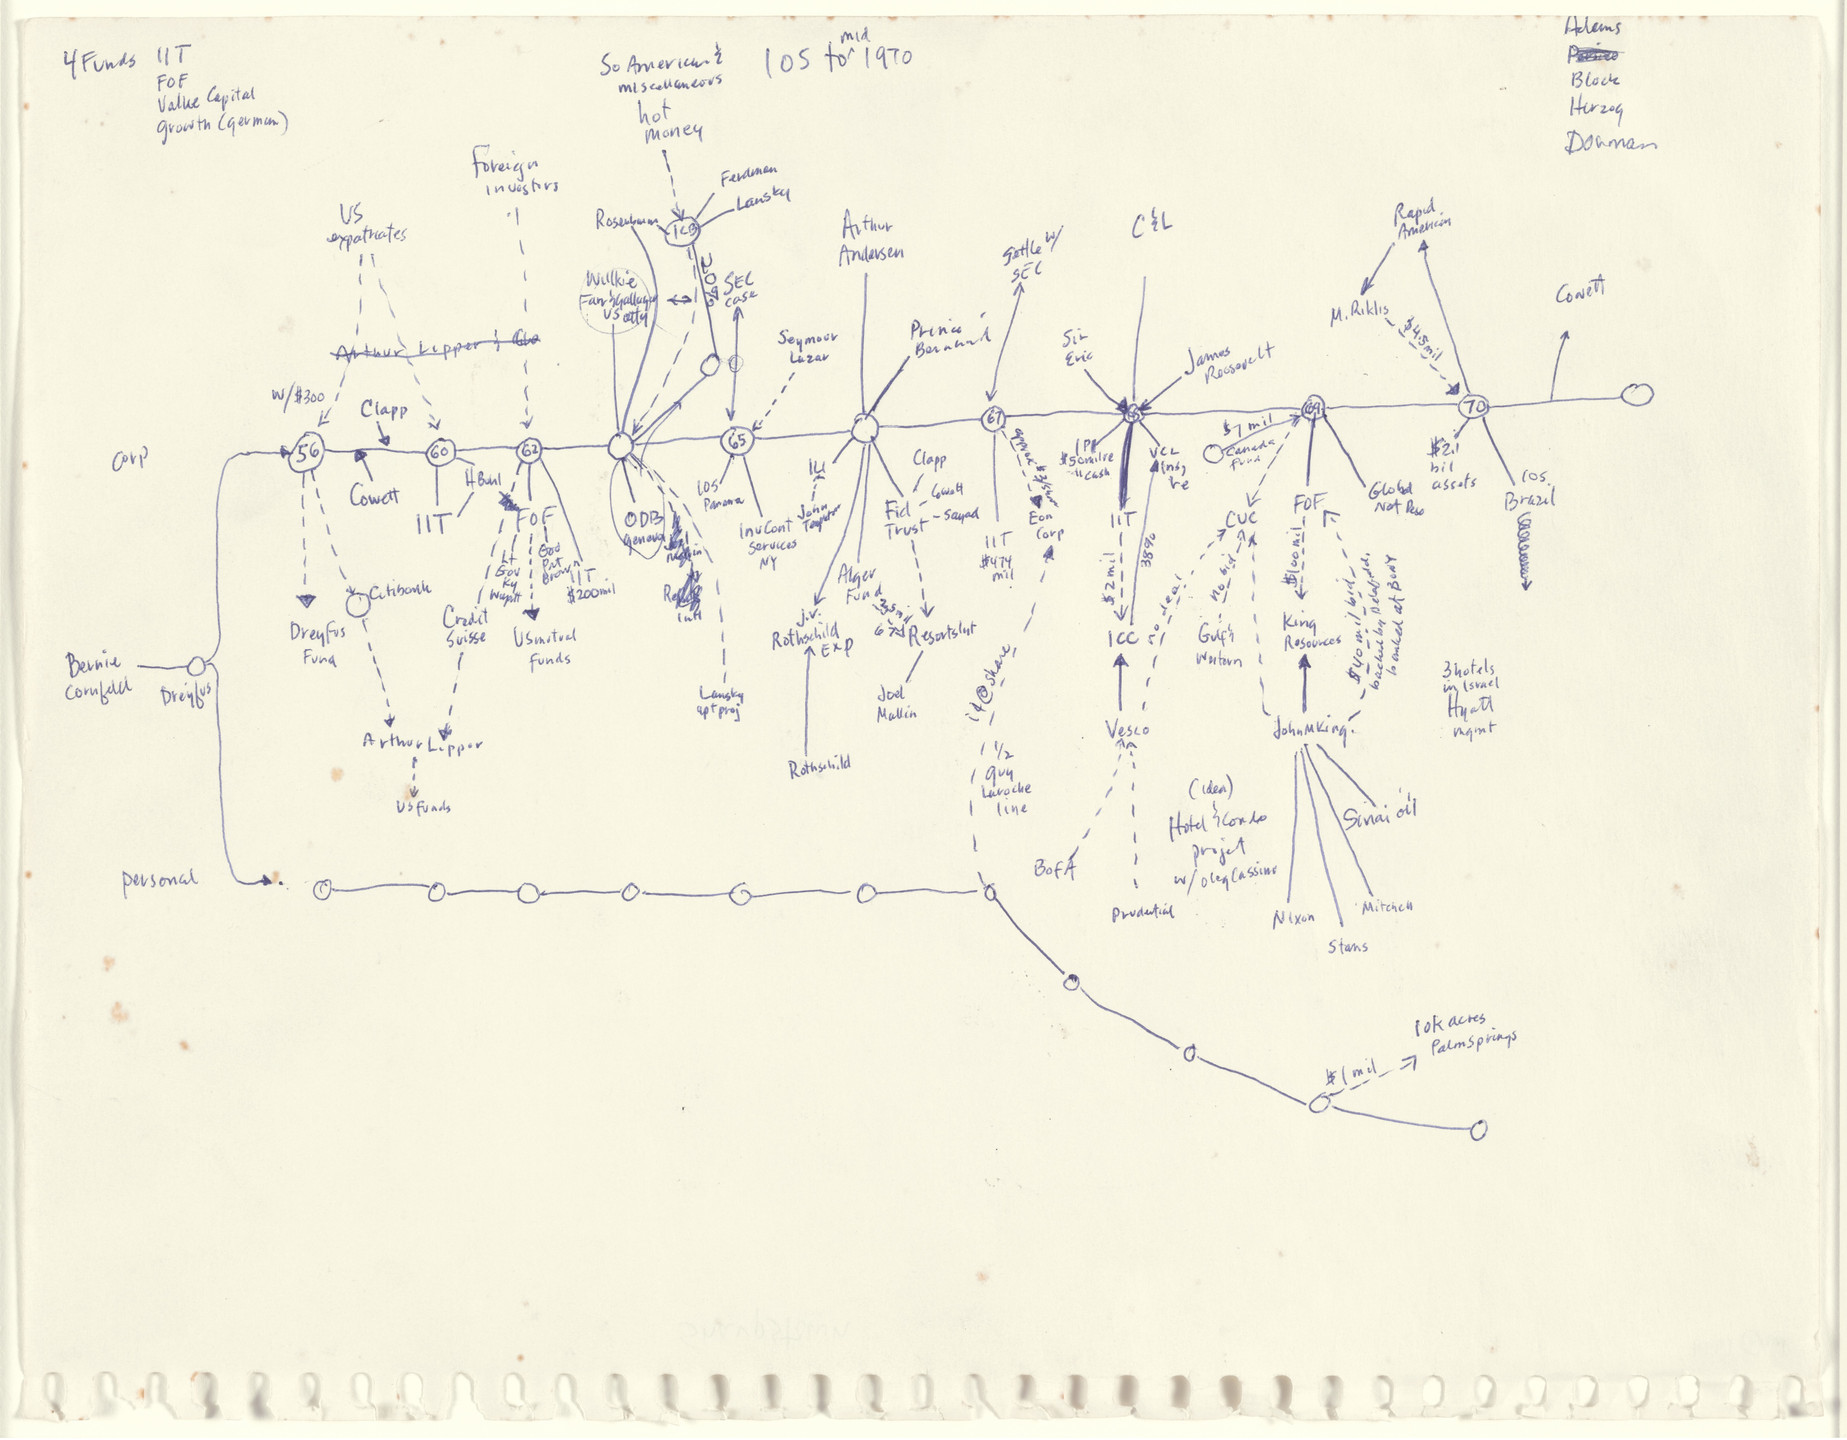 4 Funds IIT
FOF
Value Capital
growth (german)
So American &
miscellaneous
hot
money
mid
IOS to 1970
Adams
Block
Herzog
Foreign
investors
US
expatriates
Ferdman
Lansky
Rosenbaum
ICB
20%
Willkie
Farr & Gallagher
US atty
SEC
case
Arthur
Andersen
Settle w/
SEC
C&L
Rapid
American
M. Riklis
$4.5 mil
Cowett
Arthur Lipper & Co
Seymour
Lazar
Prince
Bernard
Sir
Eric
James
Roosevelt
w/$300
Clapp
Corp
56
60
62
65
67
69
70
Cowett
IIT
H Buhl
FOF
Lt
Gov
Ky
Wyatt
God
Pat
Brown
IIT
$200 mil
ODB
Geneva
IOS
Panama
InvCont
Services
NY
ILI
John
Templeton
Clapp
Cowett
Fid
Trust
Sayad
IIT
$474
mil
approx $3/share
Eon
Corp
IPI
$50 mil re
cash
VCL
Ins,
re
IIT
$7 mil
Canada
Fund
CUC
FOF
Global
Nat Reso
$2.1
bil
assets
IOS
Brazil
Citibank
Dreyfus
Fund
Credit
Suisse
US mutual
funds
Intl
Alger
Fund
j.v.
Rothschild
Exp
Resortslnt
$2 mil
38%
ICC
no bid
Gulf &
Western
$100 mil
King
Resources
$40 mil bid
backed by Delafield,
banked at BONY
Bernie
Cornfeld
Dreyfus
Lansky
apt proj
Joel
Mallin
1¢@share
3 hotels
in Israel
Hyatt
mgmt
Arthur Lipper
US funds
Rothschild
1/2
Guy
Laroche
line
Vesco
John M King
(idea)
Hotel & Condo
project
w/ Oleg Cassini
Sinai oil
BofA
Prudential
Nixon
Mitchell
Stans
personal
10k acres
Palm Springs
$1 mil